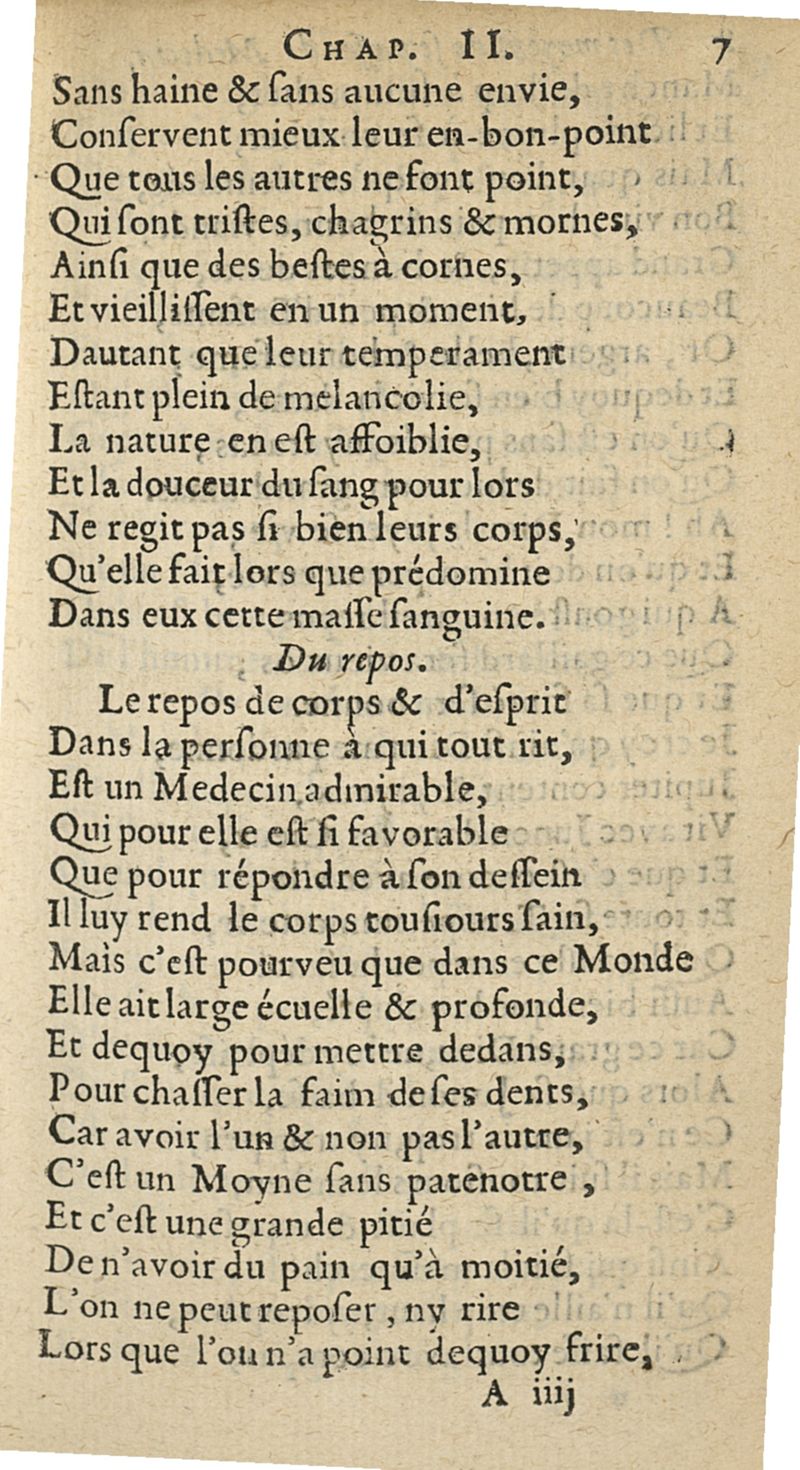 CHAP. II. 7
Sans haine & ſans aucune envie,
Conſervent mieux leur en-bon-point
Que tous les autres ne font point,
Qui ſont triſtes, chagrins & mornes,
Ainſi que des beſtes à cornes,
Et vieilliſſent en un moment,
Dautant que leur temperament
Eſtant plein de melancolie,
La nature en eſt affoiblie,
Et la douceur du ſang pour lors
Ne regit pas ſi bien leurs corps,
Qu'elle fait lors que prédomine
Dans eux cette maſſe ſanguine.
Du repos.
Le repos de corps & d'eſprit
Dans la perſonne à qui tout rit,
Eſt un Medecin admirable,
Qui pour elle eſt ſi favorable
Que pour répondre à ſon deſſein
Il luy rend le corps touſiours ſain,
Mais c'eſt pourveu que dans ce Monde
Elle ait large écuelle & profonde,
Et dequoy pour mettre dedans,
Pour chaſſer la faim de ſes dents,
Car avoir l'un & non pas l'autre,
C'eſt un Moyne ſans patenotre ,
Et c'eſt une grande pitié
De n'avoir du pain qu'à moitié,
L'on ne peut repoſer , ny rire
Lors que l'on n'a point dequoy frire,
A iiij